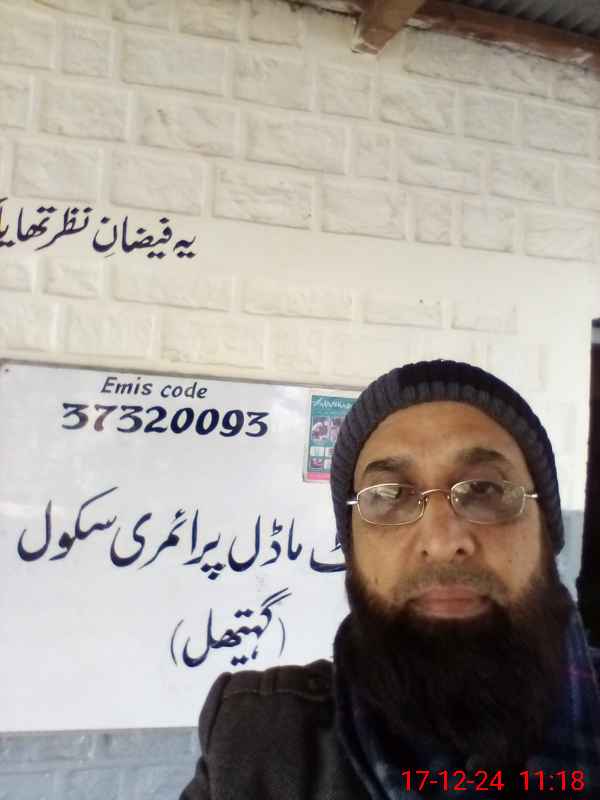 یہ فیضانِ نظر تھا یا
Emis code
37320093
ماڈل پرائمری سکول
(گہتیھل)
17-12-24 11:18